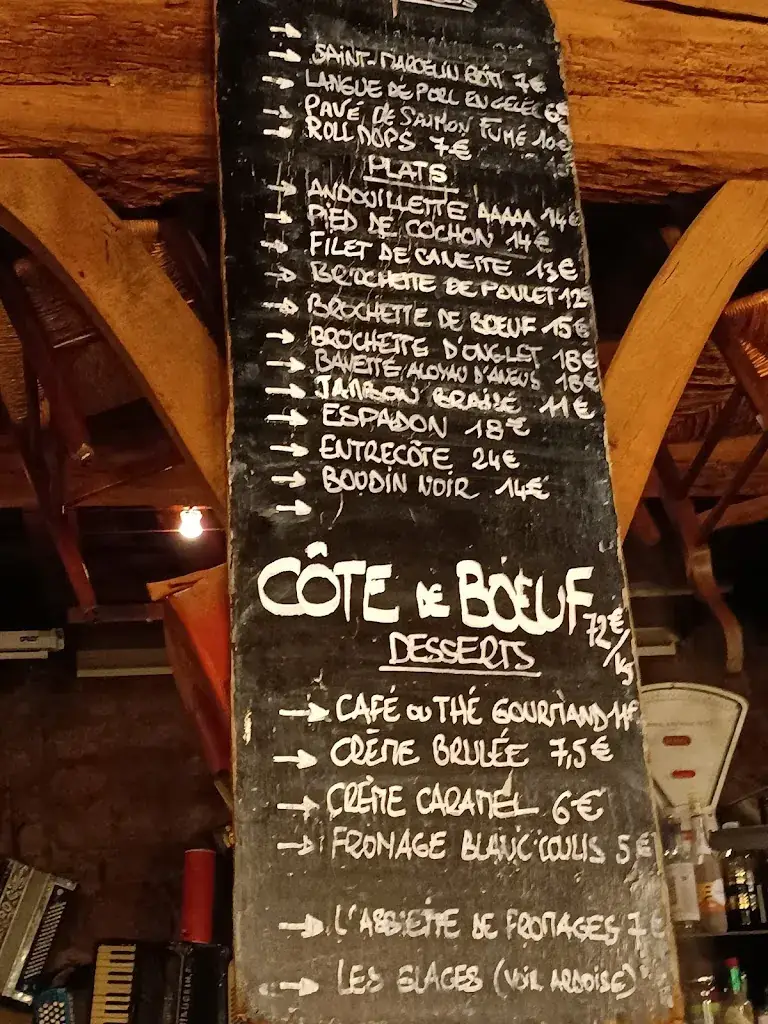 →
→ SAINT-MARCELIN RÔTI 7€
→ LANGUE DE PORC EN GELÉE 6€
→ PAVÉ DE SAUMON FUMÉ 10€
→ ROLLMOPS 7€
PLATS
→ ANDOUILLETTE AAAAA 14€
→ PIED DE COCHON 14€
→ FILET DE CANETTE 13€
→ BROCHETTE DE POULET 12€
→ BROCHETTE DE BOEUF 15€
→ BROCHETTE D'ONGLET 18€
→ BAVETTE ALOYAU D'ANGUS 18€
→ JAMBON BRAISÉ 11€
→ ESPADON 18€
→ ENTRECÔTE 24€
→ BOUDIN NOIR 14€
→
CÔTE DE BOEUF 72€/kg
DESSERTS
→ CAFÉ OU THÉ GOURMAND 11€
→ CRÈME BRULÉE 7,5€
→ CRÈME CARAMEL 6€
→ FROMAGE BLANC COULIS 5€
→ L'ASSIETTE DE FROMAGES 7€
→ LES GLACES (VOIR ARDOISE)